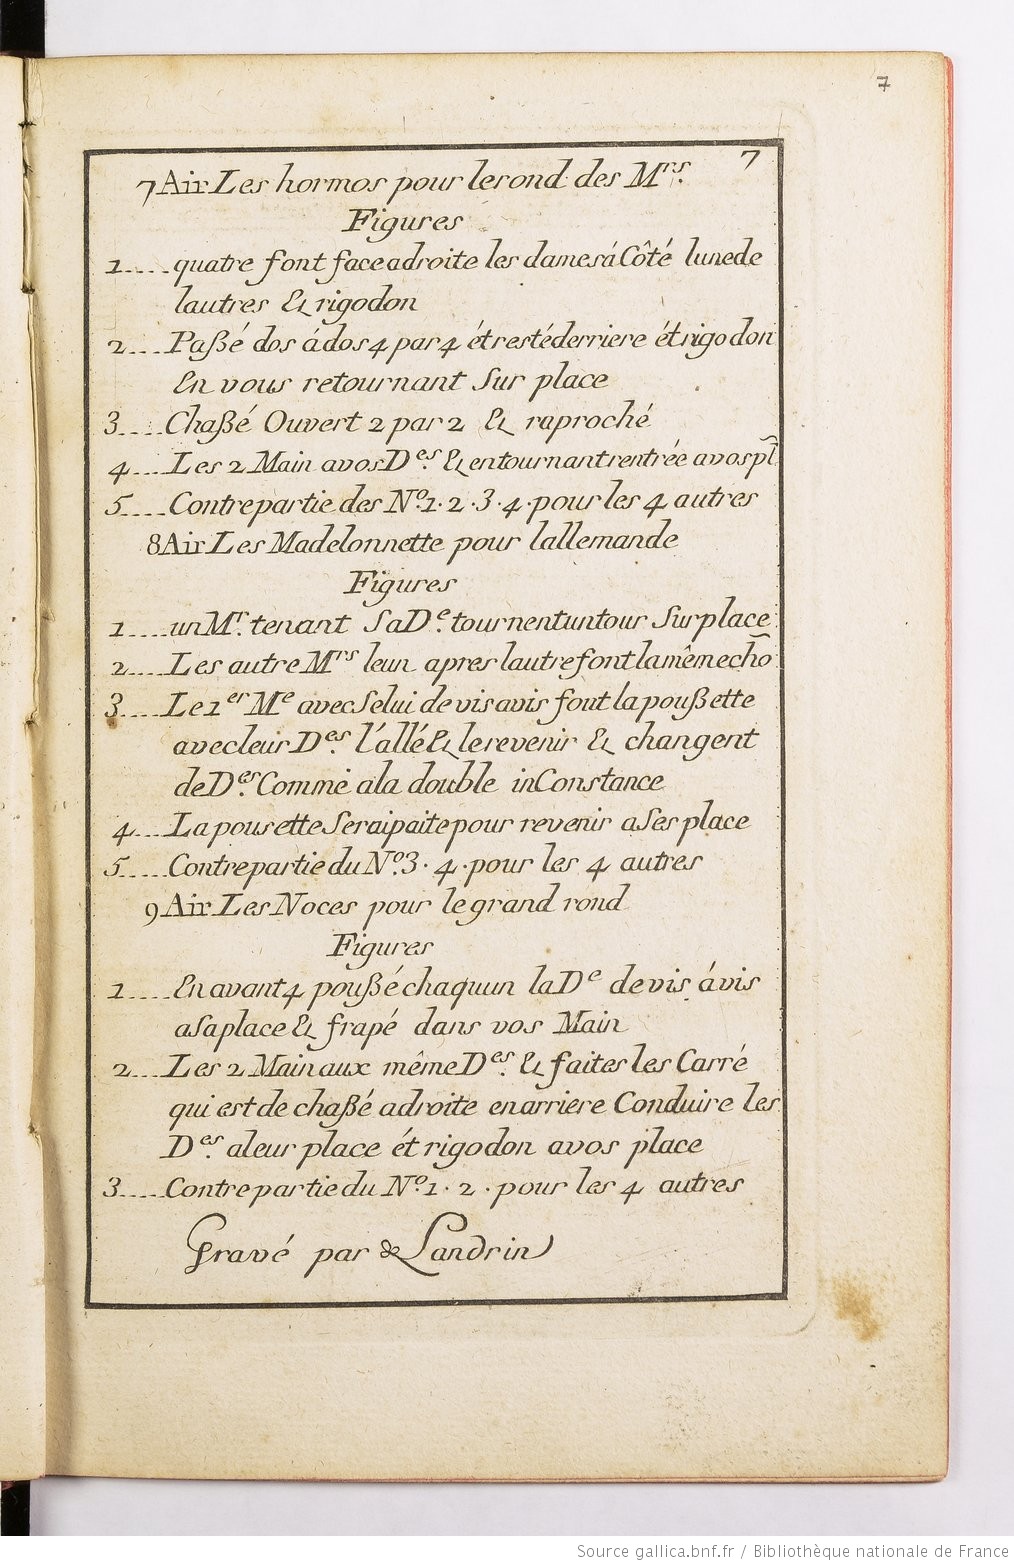 7
7
7 Air Les hormos pour lerond des Mrs.
Figures
1.... quatre font face adroite les dames á Côté lunede
lautres & rigodon
2.... Paßé dos á dos 4 par 4 ét resté derriere ét rigodon
En vous retournant Sur place
3.... Chaßé Ouvert 2 par 2 & raproché
4.... Les 2 Main avos Des. & entournant rentrée avos pl
5.... Contrepartie des No. 1. 2. 3. 4. pour les 4 autres
8 Air Les Madelonnette pour lallemande
Figures
1.... un Mr. tenant Sa De. tournent un tour Sur place
2.... Les autre Mrs leun apres lautre font la même cho
3.... Le 1er Me avec Selui de vis avis font la poußette
avec leur Des. l'allé & le revenir & changent
de Des. Comme ala double inConstance
4.... La pousette Serai paite pour revenir a Ses place
5.... Contrepartie du No. 3. 4. pour les 4 autres
9 Air Les Noces pour le grand rond
Figures
1.... En avant 4 poußé chaquun la De de vis á vis
a Sa place & frapé dans vos Main
2.... Les 2 Main aux même Des. & faites les Carré
qui est de chaßé a droite en arriere Conduire les
Des. a leur place ét rigodon avos place
3.... Contrepartie du No. 1. 2. pour les 4 autres
Gravé par de Landrin
Source gallica.bnf.fr / Bibliothèque nationale de France